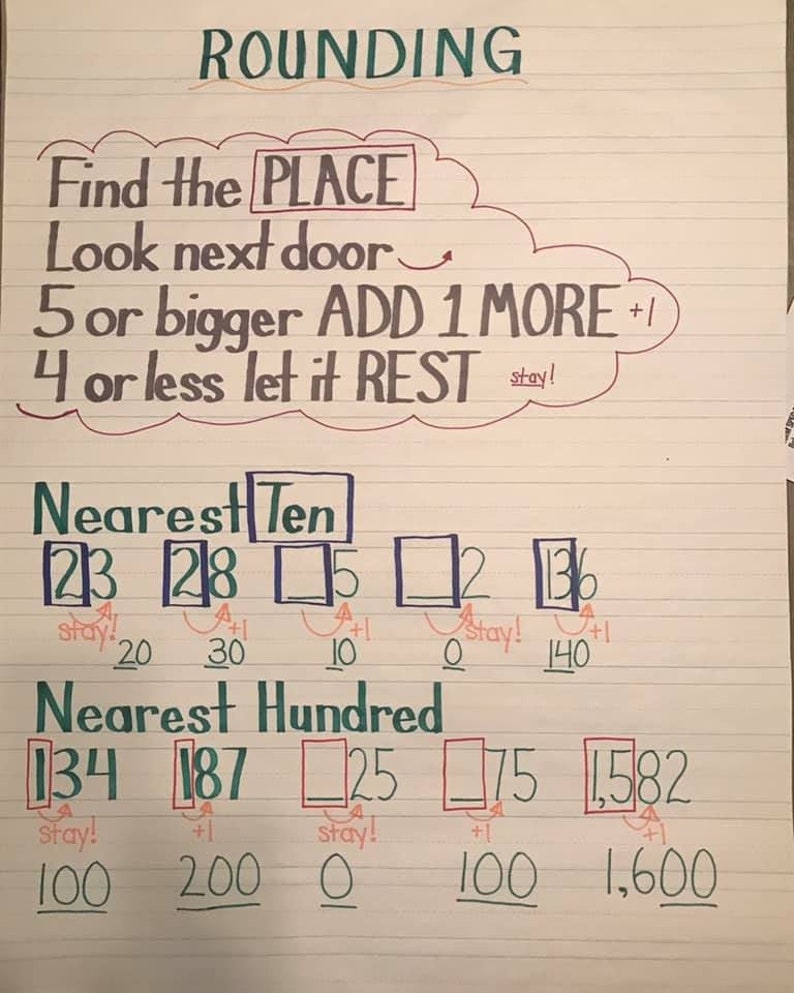 ROUNDING
Find the PLACE
Look next door
5 or bigger ADD 1 MORE +1
4 or less let it REST stay!
Nearest Ten
23 28 _5 _2 136
stay! +1 +1 stay! +1
20 30 10 0 140
Nearest Hundred
134 187 _25 _75 1,582
stay! +1 stay! +1 +1
100 200 0 100 1,600